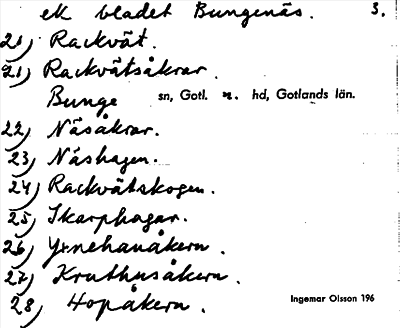 ek bladet Bungenäs. 3.
21) Rackvät.
21) Rackvätsåkrar.
Bunge sn, Gotl. n. hd, Gotlands län.
22) Näsåkrar.
23) Näshagen.
24) Rackvätskogen.
25) Skarphagar.
26) Yrnehanåkern.
27) Kruthusåkern.
28) Hopåkern.
Ingemar Olsson 196